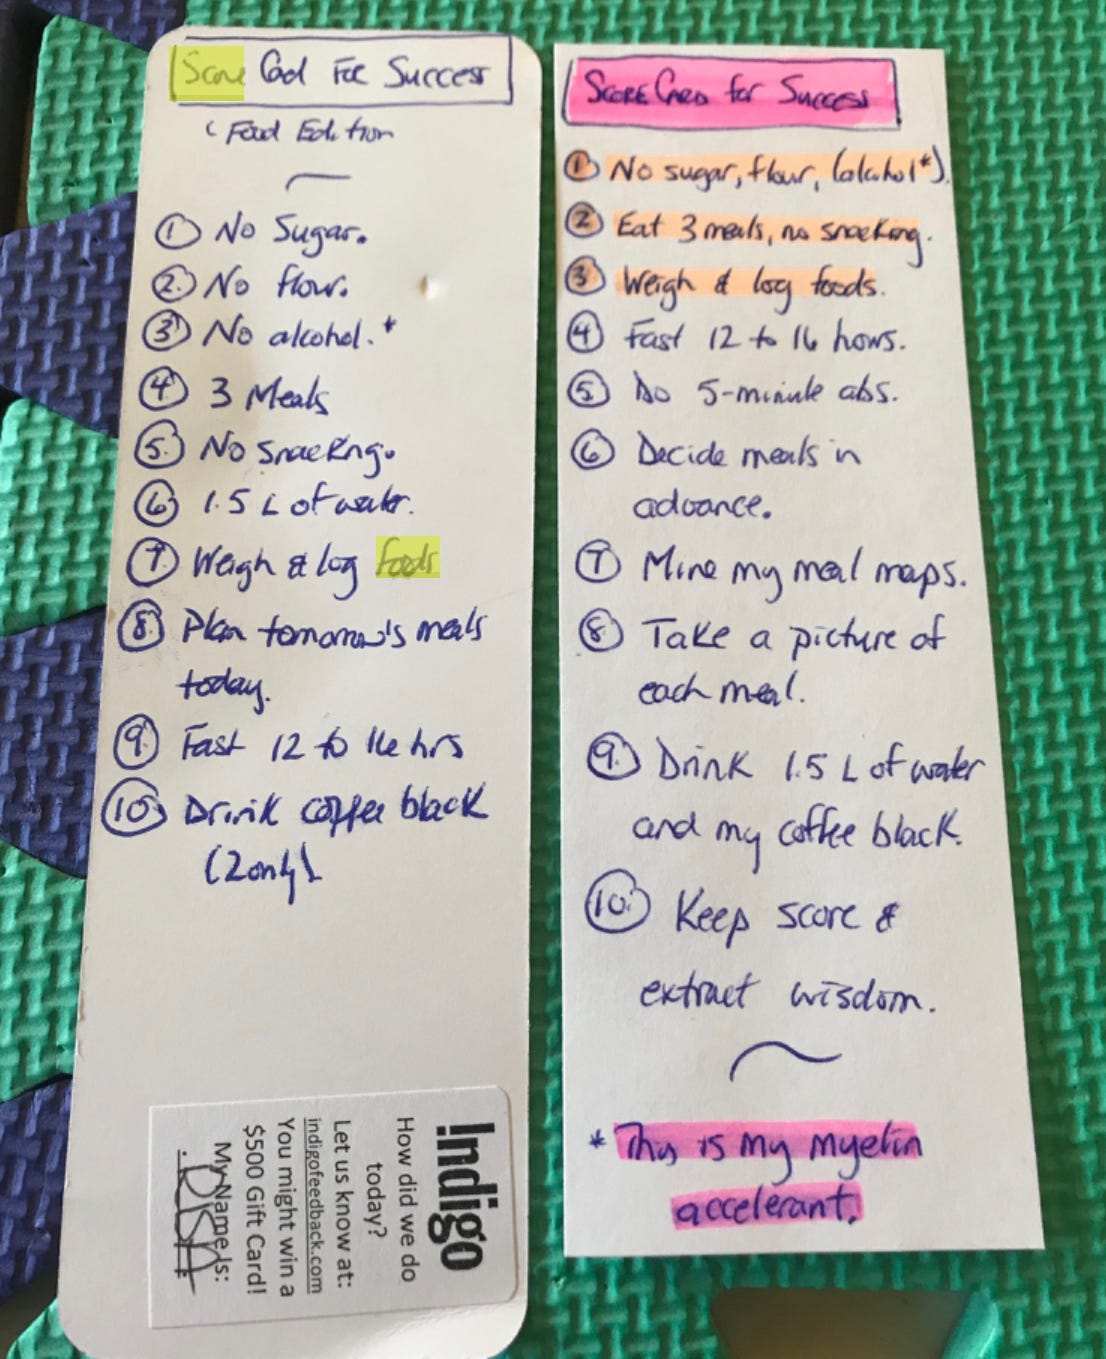 Score Card For Success
( Food Edition
① No Sugar.
②. No flour.
③ No alcohol.*
④ 3 Meals
⑤. No snacking.
⑥ 1.5 L of water.
⑦ Weigh & log foods
⑧. Plan tomorrow's meals
today.
⑨. Fast 12 to 16 hrs
⑩ Drink coffee black
(2 only)
Indigo
How did we do
today?
Let us know at:
indigofeedback.com
You might win a
$500 Gift Card!
My Name Is:
Score Card for Success
① No sugar, flour, (alcohol*).
② Eat 3 meals, no snacking.
③ Weigh & log foods.
④ Fast 12 to 16 hours.
⑤ Do 5-minute abs.
⑥ Decide meals in
advance.
⑦ Mine my meal maps.
⑧. Take a picture of
each meal.
⑨. Drink 1.5 L of water
and my coffee black.
⑩. Keep score &
extract wisdom.
* This is my myelin
accelerant.